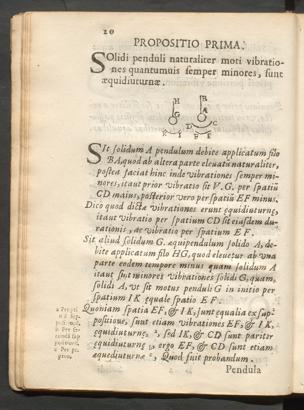 20
PROPOSITIO PRIMA.
SOlidi penduli naturaliter moti vibratio-
nes quantumuis semper minores, sunt
æquidiuturnæ.
H
B
G
A
D C
K I
F E
SIt solidum A pendulum debite applicatum filo
BA, quod ab altera parte eleuatū naturaliter,
postea faciat hinc inde vibrationes semper mi-
nores, itaut prior vibratio sit V.G. per spatiū
CD maius, posterior vero per spatiū EF minus.
Dico quod dictæ vibrationes erunt equidiuturnę,
itaut vibratio per spatium CD sit eiusdem du-
rationis, ac vibratio per spatium EF.
Sit aliud solidum G. æquipendulum solido A, de-
bite applicatum filo HG, quod eleuetur ab vna
parte eodem tempore minus quam solidum A
itaut sint minores vibrationes solidi G, quam,
solidi A, vt sit motus penduli G in initio per
spatium IK equale spatio EF.
Quoniam spatia EF, & IK, sunt equalia ex sup-
positione, sunt etiam vibrationes EF, & IK,
equidiuturnę, sed IK, & CD sunt pariter
equidiuturnę, ergo EF, & CD sunt etiam
aquediuturnæ, Quod fuit probandum.
Pendula